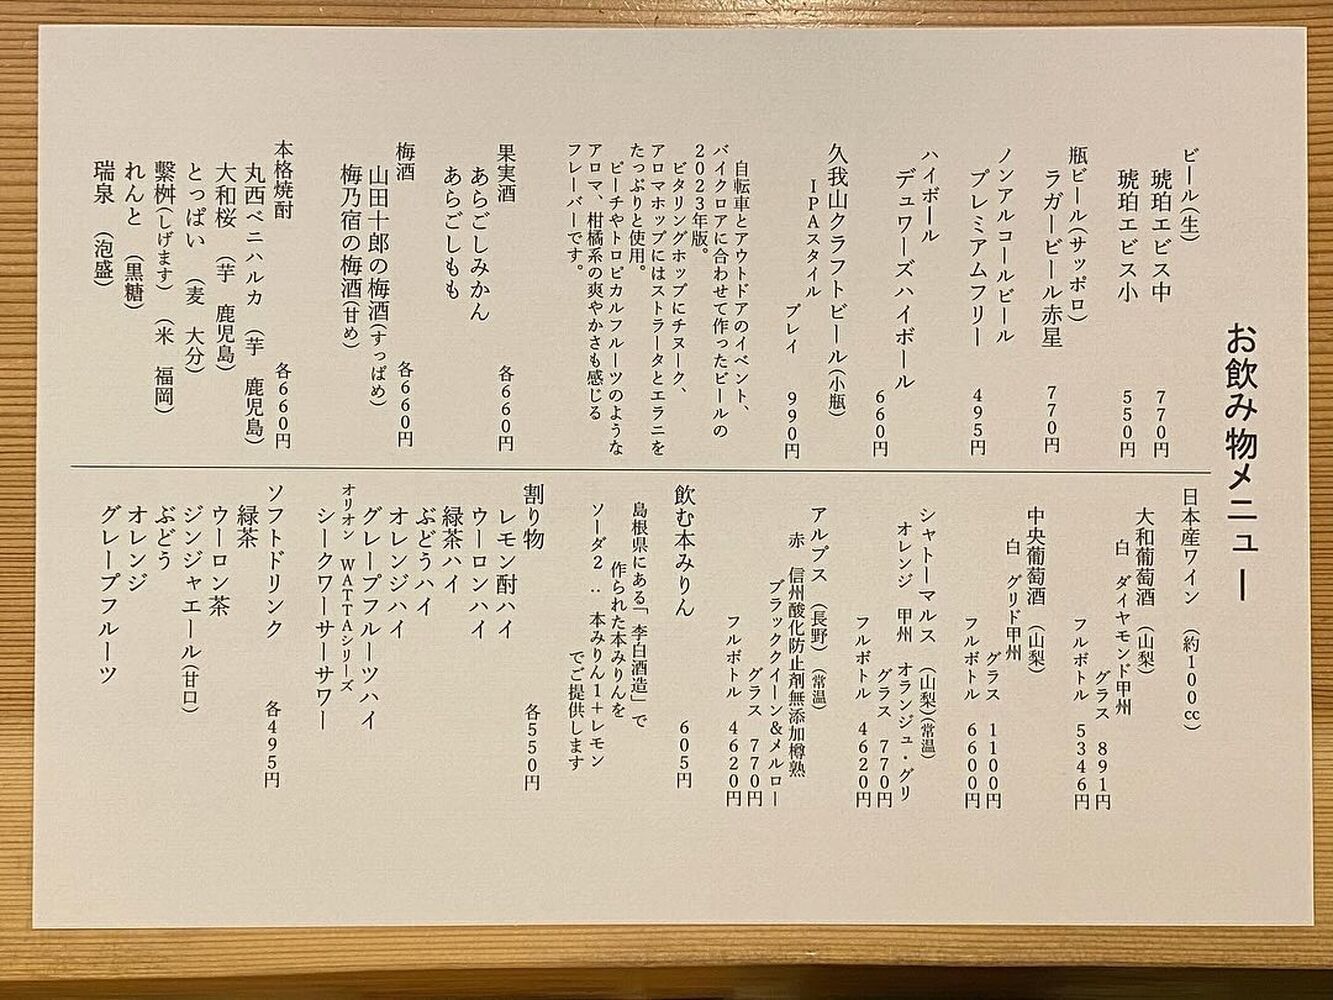 お飲み物メニュー
ビール(生)
琥珀エビス中 770円
琥珀エビス小 550円
瓶ビール(サッポロ)
ラガービール赤星 770円
ノンアルコールビール
プレミアムフリー 495円
ハイボール
デュワーズハイボール
660円
久我山クラフトビール(小瓶)
IPAスタイル
プレイ 990円
自転車とアウトドアのイベント、
バイクロアに合わせて作ったビールの
2023年版。
ビタリングホップにチヌーク、
アロマホップにはストラータとエラニを
たっぷりと使用。
ピーチやトロピカルフルーツのような
アロマ、柑橘系の爽やかさも感じる
フレーバーです。
果実酒 各660円
あらごしみかん
あらごしもも
梅酒 各660円
山田十郎の梅酒(すっぱめ)
梅乃宿の梅酒(甘め)
本格焼酎 各660円
丸西ベニハルカ (芋 鹿児島)
大和桜 (芋 鹿児島)
とっぱい (麦 大分)
繋桝(しげます) (米 福岡)
れんと (黒糖)
瑞泉 (泡盛)
日本産ワイン (約100cc)
大和葡萄酒 (山梨)
白 ダイヤモンド甲州
グラス 891円
フルボトル 5346円
中央葡萄酒 (山梨)
白 グリド甲州
グラス 1100円
フルボトル 6600円
シャトーマルス (山梨)(常温)
オレンジ 甲州 オランジュ・グリ
グラス 770円
フルボトル 4620円
アルプス (長野) (常温)
赤 信州酸化防止剤無添加樽熟
ブラッククイーン&メルロー
グラス 770円
フルボトル 4620円
飲む本みりん 605円
島根県にある「李白酒造」で
作られた本みりんを
ソーダ2:本みりん1+レモン
でご提供します
割り物 各550円
レモン酎ハイ
ウーロンハイ
緑茶ハイ
ぶどうハイ
オレンジハイ
グレープフルーツハイ
オリオン WATTAシリーズ
シークワーサーサワー
ソフトドリンク 各495円
緑茶
ウーロン茶
ジンジャエール(甘口)
ぶどう
オレンジ
グレープフルーツ